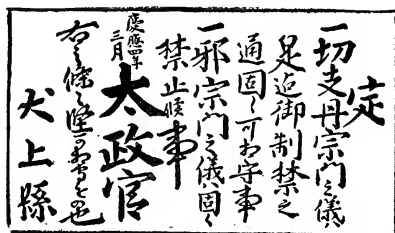 定
一切支丹宗門之儀ハ
是迄御制禁之
通固く可相守事
一邪宗門之儀ハ固く
禁止候事
慶應四年
三月
太政官
右之條々堅可相守者也
犬上縣